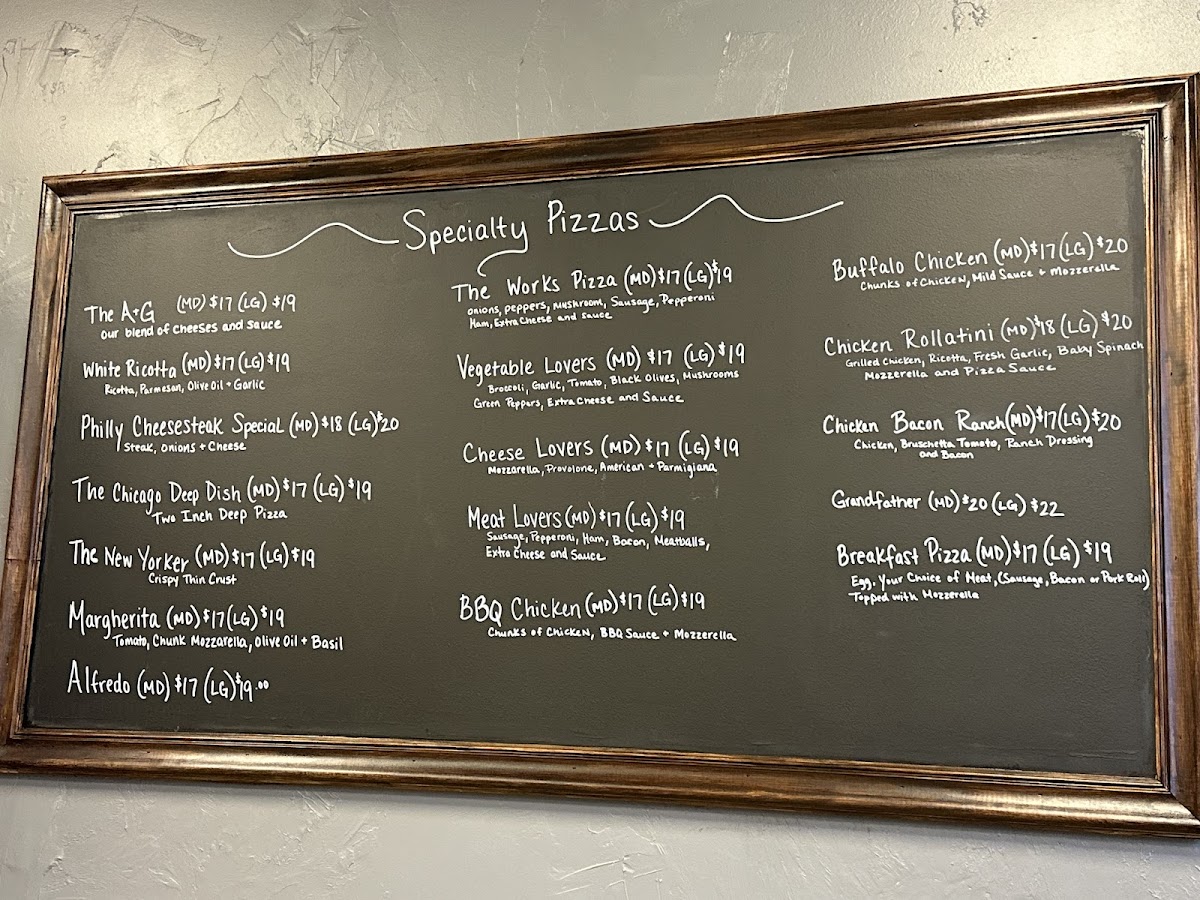 Specialty Pizzas
The A+G (MD) $17 (LG) $19
our blend of cheeses and sauce
White Ricotta (MD) $17 (LG) $19
Ricotta, Parmesan, Olive Oil + Garlic
Philly Cheesesteak Special (MD) $18 (LG) $20
Steak, onions + Cheese
The Chicago Deep Dish (MD) $17 (LG) $19
Two Inch Deep Pizza
The New Yorker (MD) $17 (LG) $19
Crispy Thin Crust
Margherita (MD) $17 (LG) $19
Tomato, Chunk Mozzarella, Olive Oil + Basil
Alfredo (MD) $17 (LG) $19.00
The Works Pizza (MD) $17 (LG) $19
onions, peppers, mushroom, Sausage, Pepperoni
Ham, Extra Cheese and sauce
Vegetable Lovers (MD) $17 (LG) $19
Broccoli, Garlic, Tomato, Black Olives, Mushrooms
Green Peppers, Extra Cheese and Sauce
Cheese Lovers (MD) $17 (LG) $19
Mozzarella, Provolone, American + Parmigiana
Meat Lovers (MD) $17 (LG) $19
Sausage, Pepperoni, Ham, Bacon, Meatballs,
Extra Cheese and Sauce
BBQ Chicken (MD) $17 (LG) $19
Chunks of Chicken, BBQ Sauce + Mozzerella
Buffalo Chicken (MD) $17 (LG) $20
Chunks of Chicken, Mild Sauce + Mozzerella
Chicken Rollatini (MD) $18 (LG) $20
Grilled Chicken, Ricotta, Fresh Garlic, Baby Spinach
Mozzerella and Pizza Sauce
Chicken Bacon Ranch (MD) $17 (LG) $20
Chicken, Bruschetta Tomato, Ranch Dressing
and Bacon
Grandfather (MD) $20 (LG) $22
Breakfast Pizza (MD) $17 (LG) $19
Egg, Your Choice of Meat, (Sausage, Bacon or Pork Roll)
Topped with Mozzerella